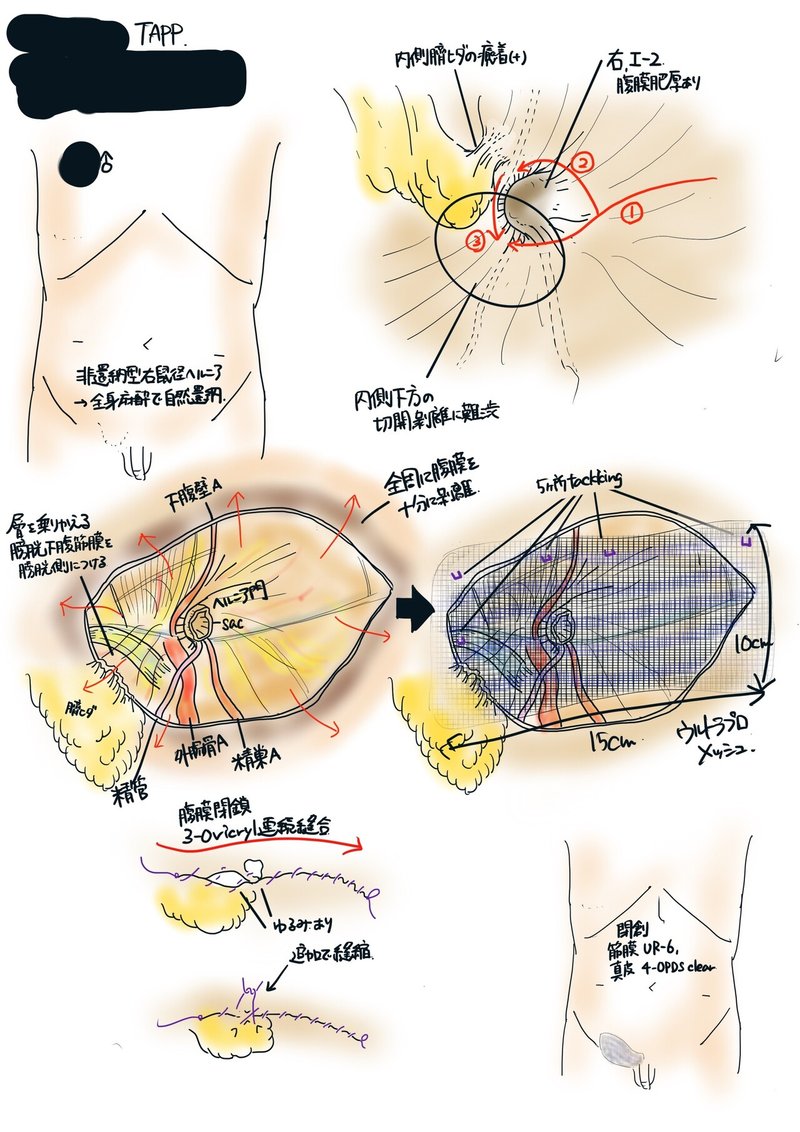 TAPP.
♂
非還納型右鼠径ヘルニア
→全身麻酔で自然還納.
内側臍ヒダの癒着(+)
右, I-2.
腹膜肥厚あり
①
②
③
内側下方の
切開剥離に難渋
下腹壁A
全周に腹膜を
十分に剥離.
層を乗りかえる
膀胱下腹筋膜を
膀胱側につける
ヘルニア門
sac
臍ヒダ
精管
外腸骨A
精巣A
5ヶ所tackking
10cm
15cm
ウルトラプロ
メッシュ.
腹膜閉鎖
3-0 vicryl連続縫合
ゆるみあり
追加で縫縮.
閉創
筋膜 UR-6,
真皮 4-0PDS clear